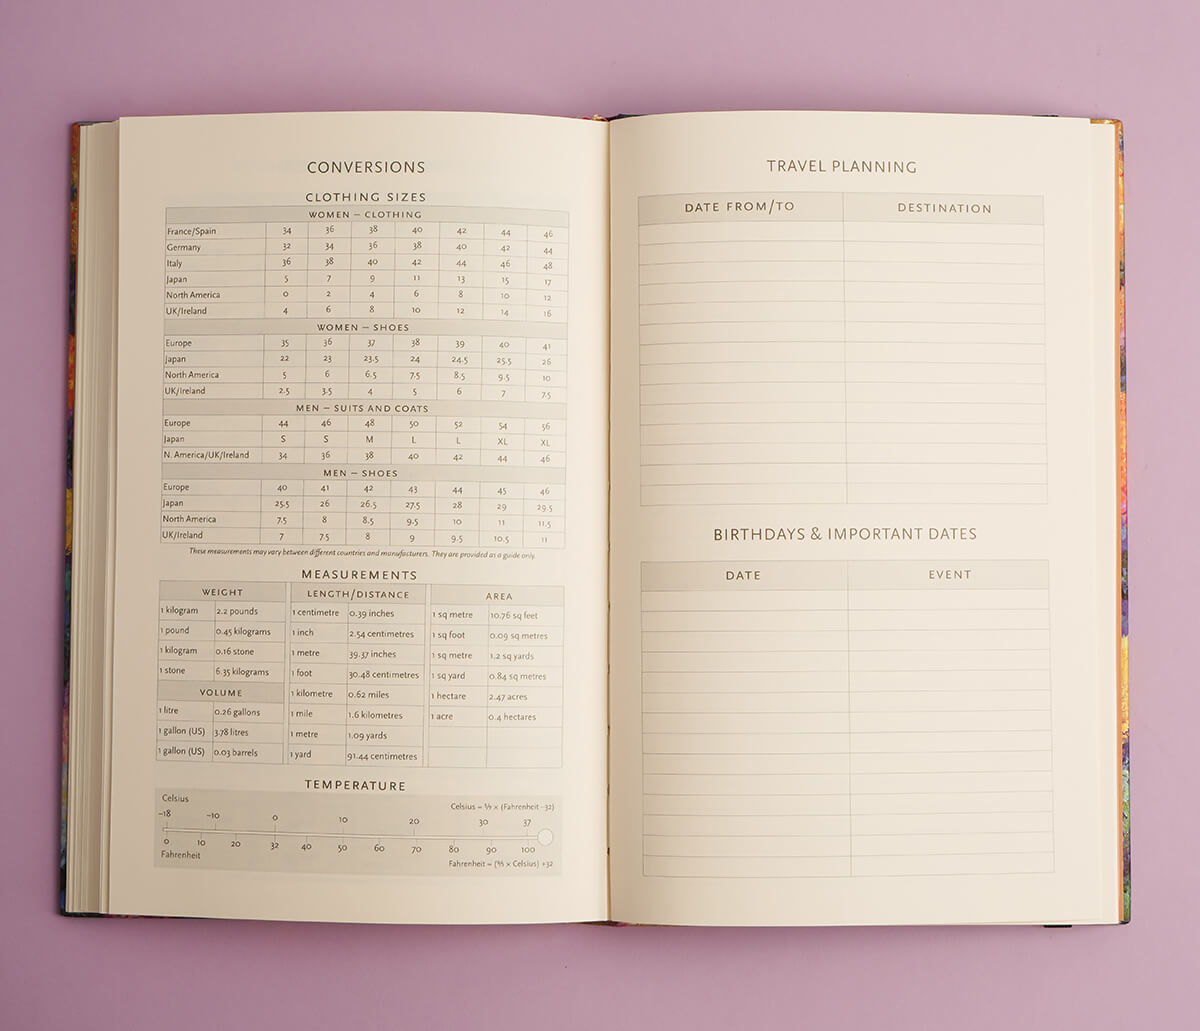 CONVERSIONS
CLOTHING SIZES
WOMEN – CLOTHING
France/Spain 34 36 38 40 42 44 46
Germany 32 34 36 38 40 42 44
Italy 36 38 40 42 44 46 48
Japan 5 7 9 11 13 15 17
North America 0 2 4 6 8 10 12
UK/Ireland 4 6 8 10 12 14 16
WOMEN – SHOES
Europe 35 36 37 38 39 40 41
Japan 22 23 23.5 24 24.5 25.5 26
North America 5 6 6.5 7.5 8.5 9.5 10
UK/Ireland 2.5 3.5 4 5 6 7 7.5
MEN – SUITS AND COATS
Europe 44 46 48 50 52 54 56
Japan S S M L L XL XL
N. America/UK/Ireland 34 36 38 40 42 44 46
MEN – SHOES
Europe 40 41 42 43 44 45 46
Japan 25.5 26 26.5 27.5 28 29 29.5
North America 7.5 8 8.5 9.5 10 11 11.5
UK/Ireland 7 7.5 8 9 9.5 10.5 11
These measurements may vary between different countries and manufacturers. They are provided as a guide only.
MEASUREMENTS
WEIGHT
1 kilogram 2.2 pounds
1 pound 0.45 kilograms
1 kilogram 0.16 stone
1 stone 6.35 kilograms
VOLUME
1 litre 0.26 gallons
1 gallon (US) 3.78 litres
1 gallon (US) 0.03 barrels
LENGTH/DISTANCE
1 centimetre 0.39 inches
1 inch 2.54 centimetres
1 metre 39.37 inches
1 foot 30.48 centimetres
1 kilometre 0.62 miles
1 mile 1.6 kilometres
1 metre 1.09 yards
1 yard 91.44 centimetres
AREA
1 sq metre 10.76 sq feet
1 sq foot 0.09 sq metres
1 sq metre 1.2 sq yards
1 sq yard 0.84 sq metres
1 hectare 2.47 acres
1 acre 0.4 hectares
TEMPERATURE
Celsius
Celsius = 5/9 × (Fahrenheit -32)
-18 -10 0 10 20 30 37
0 10 20 32 40 50 60 70 80 90 100
Fahrenheit
Fahrenheit = (9/5 × Celsius) +32
TRAVEL PLANNING
DATE FROM/TO DESTINATION
BIRTHDAYS & IMPORTANT DATES
DATE EVENT